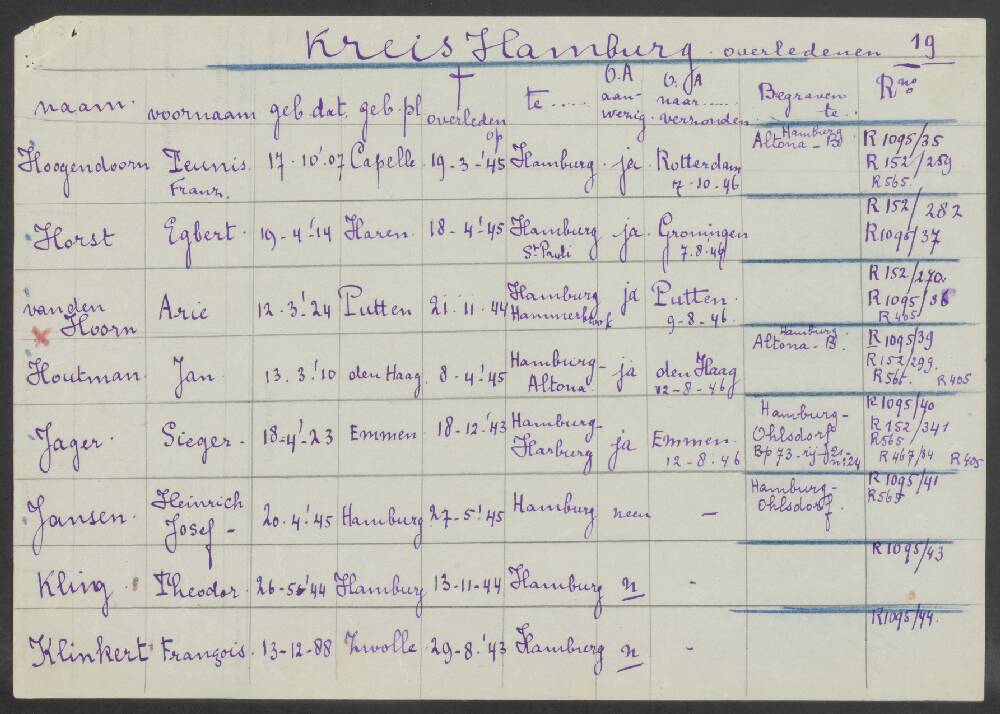 Kreis Hamburg. overledenen 19
naam. voornaam geb. dat. geb. pl. † overleden op te ..... O.A aanwezig O.A naar ..... verzonden Begraven te .. R no
Hoogendoorn Teunis Franz. 17.10.'07 Capelle 19-3-'45 Hamburg ja Rotterdam 7.10.46 Altona-Bf Hamburg R1095/35
R152/259
R565.
Horst Egbert. 19-4-'14 Haren. 18-4-'45 Hamburg St Pauli ja. Groningen 7.8.'46 R152/282
R1095/37
van den Hoorn Arie 12.3.'24 Putten 21.11.44 Hamburg Hammerbrook ja Putten. 9-8-46. R152/270.
R1095/38
R405
Houtman. Jan 13.3.'10 den Haag 8-4-'45 Hamburg-Altona ja den Haag 12-8-46 Hamburg Altona-B. R1095/39
R152/299.
R565. R405
Jager. Sieger- 18-4-'23 Emmen 18-12-'43 Hamburg-Harburg ja Emmen. 12-8.46 Hamburg-Ohlsdorf Bp 73-rij R1095/40
R152/341
R565
R467/34 R405
Jansen. Heinrich Josef- 20.4.'45 Hamburg 27-5-'45 Hamburg neen - Hamburg-Ohlsdorf. R1095/41
R565
Kling Theodor. 26-5-'44 Hamburg 13-11-44 Hamburg n - R1095/43
Klinkert François. 13-12-88 Zwolle. 29-8.'43 Hamburg n - R1095/44.